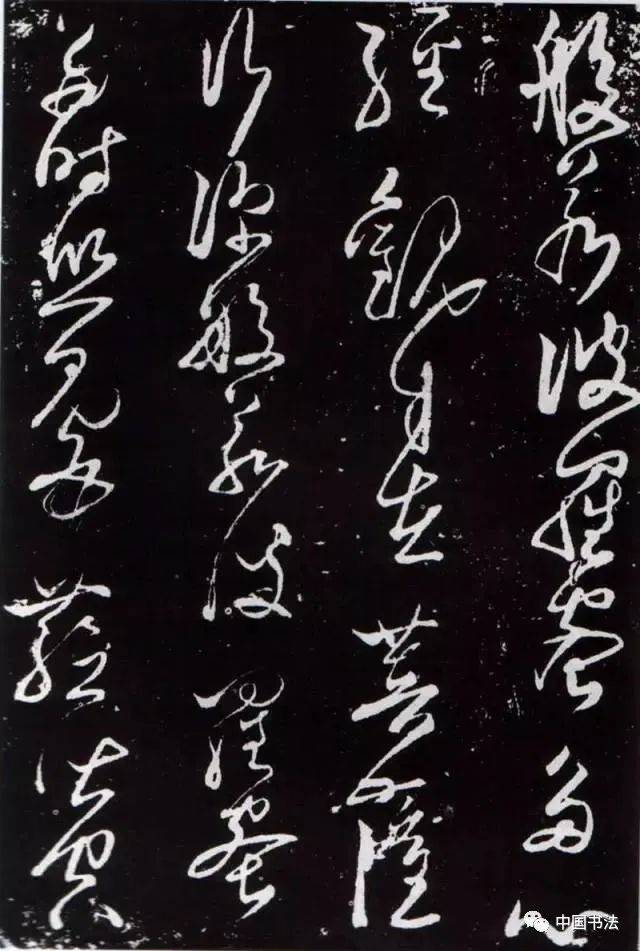 般若波羅蜜多心
經觀自在菩薩
行深般若波羅蜜
多時照見五蘊皆空
中国书法